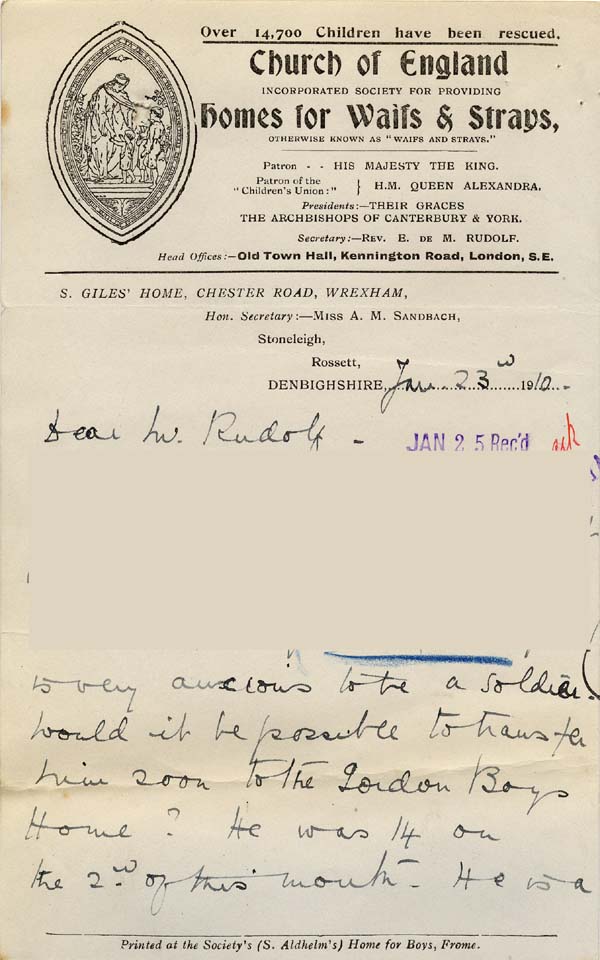 Over 14,700 Children have been rescued.
Church of England
INCORPORATED SOCIETY FOR PROVIDING
Homes for Waifs & Strays,
OTHERWISE KNOWN AS "WAIFS AND STRAYS."
Patron - - HIS MAJESTY THE KING.
Patron of the "Children's Union:" } H.M. QUEEN ALEXANDRA.
Presidents:—THEIR GRACES
THE ARCHBISHOPS OF CANTERBURY & YORK.
Secretary:—REV. E. DE M. RUDOLF.
Head Offices:—Old Town Hall, Kennington Road, London, S.E.
S. GILES' HOME, CHESTER ROAD, WREXHAM,
Hon. Secretary:—MISS A. M. SANDBACH,
Stoneleigh,
Rossett,
DENBIGHSHIRE, Jan 23rd 1910
Dear Mr. Rudolf -
JAN 25 Rec'd
is very anxious to be a soldier.
Would it be possible to transfer
him soon to the Gordon Boys
Home? He was 14 on
the 2nd of this month. He is a
Printed at the Society's (S. Aldhelm's) Home for Boys, Frome.